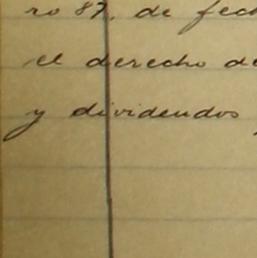 ro 87, de fech
el derecho de
y dividendos